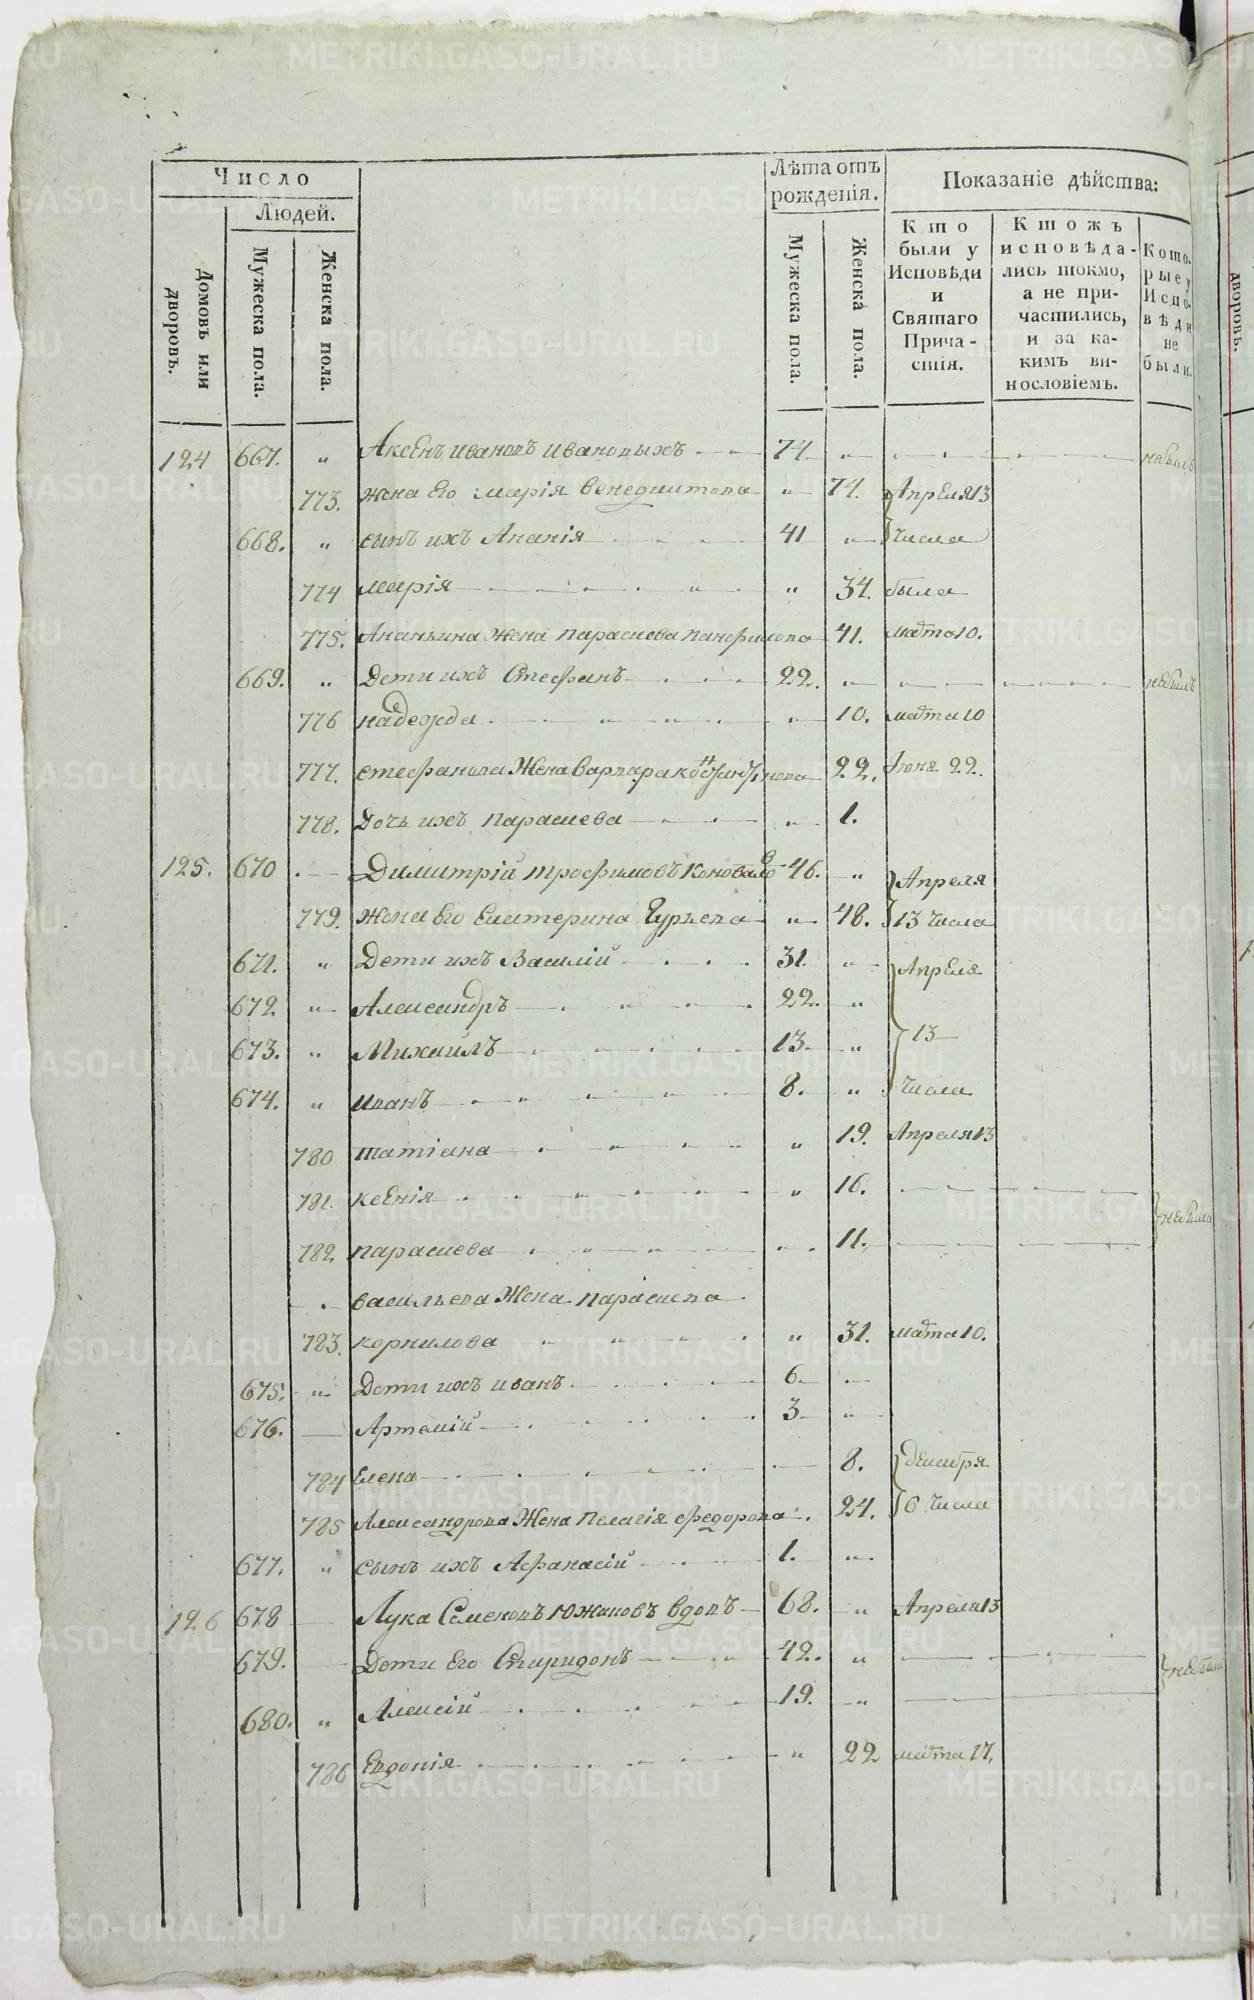 Число
Людей.
Домовъ или дворовъ.
Мужеска пола.
Женска пола.
Лѣта отъ рожденія.
Мужеска пола.
Женска пола.
Показаніе дѣйства:
Кто были у Исповѣди и Святаго Причастія.
Кто жъ исповѣдались токмо, а не причастились, и за какимъ винословіемъ.
Которые у Исповѣди не были.
124 667. „ Аксенъ Ивановъ Ивановыхъ 74 „ небылъ
773. жена Его Марія Венедиктова „ 74. Апреля 13
668. „ сынъ ихъ Ананія 41 „ числа
774 Марія „ 34. была
775. Ананьина Жена Парасиева Панфилова 41. марта 10.
669. „ Дети ихъ Стефанъ 22. „ небылъ
776 надежда „ 10. марта 10
777. стефанова Жена Варвара 22. Іюня 22.
778. Дочь ихъ Парасиева „ 1.
125. 670 Димитрій Трофимовъ Коновалов 46. „ Апреля
779. жена Его Екатерина Гурьева „ 48. 13 числа
671. „ Дети ихъ Василій 31. „ Апреля
672 „ Александръ 22. „
673. „ Михаилъ 13. „ 13
674. „ Иванъ 8. „ числа
780 татіана „ 19. Апреля 13
781. ксенія „ 16.
782 парасиева 11. небыли
васильева Жена Парасиева
783. корнилова „ 31. марта 10.
675. „ Дети ихъ иванъ 6.
676. Артемій 3 „
784 Елена 8. декабря
785 Александрова Жена Пелагія Федорова 24. 6 числа
677. „ сынъ ихъ Афанасій 1. „
126 678 Лука Семеновъ Южаковъ вдовъ 68. „ Апреля 13
679. Дети Его Спиридонъ 42. „ небыли
680. „ Алексій 19. „
786 Евдокія „ 22 марта 17.
дворовъ.
METRIKI.GASO-URAL.RU